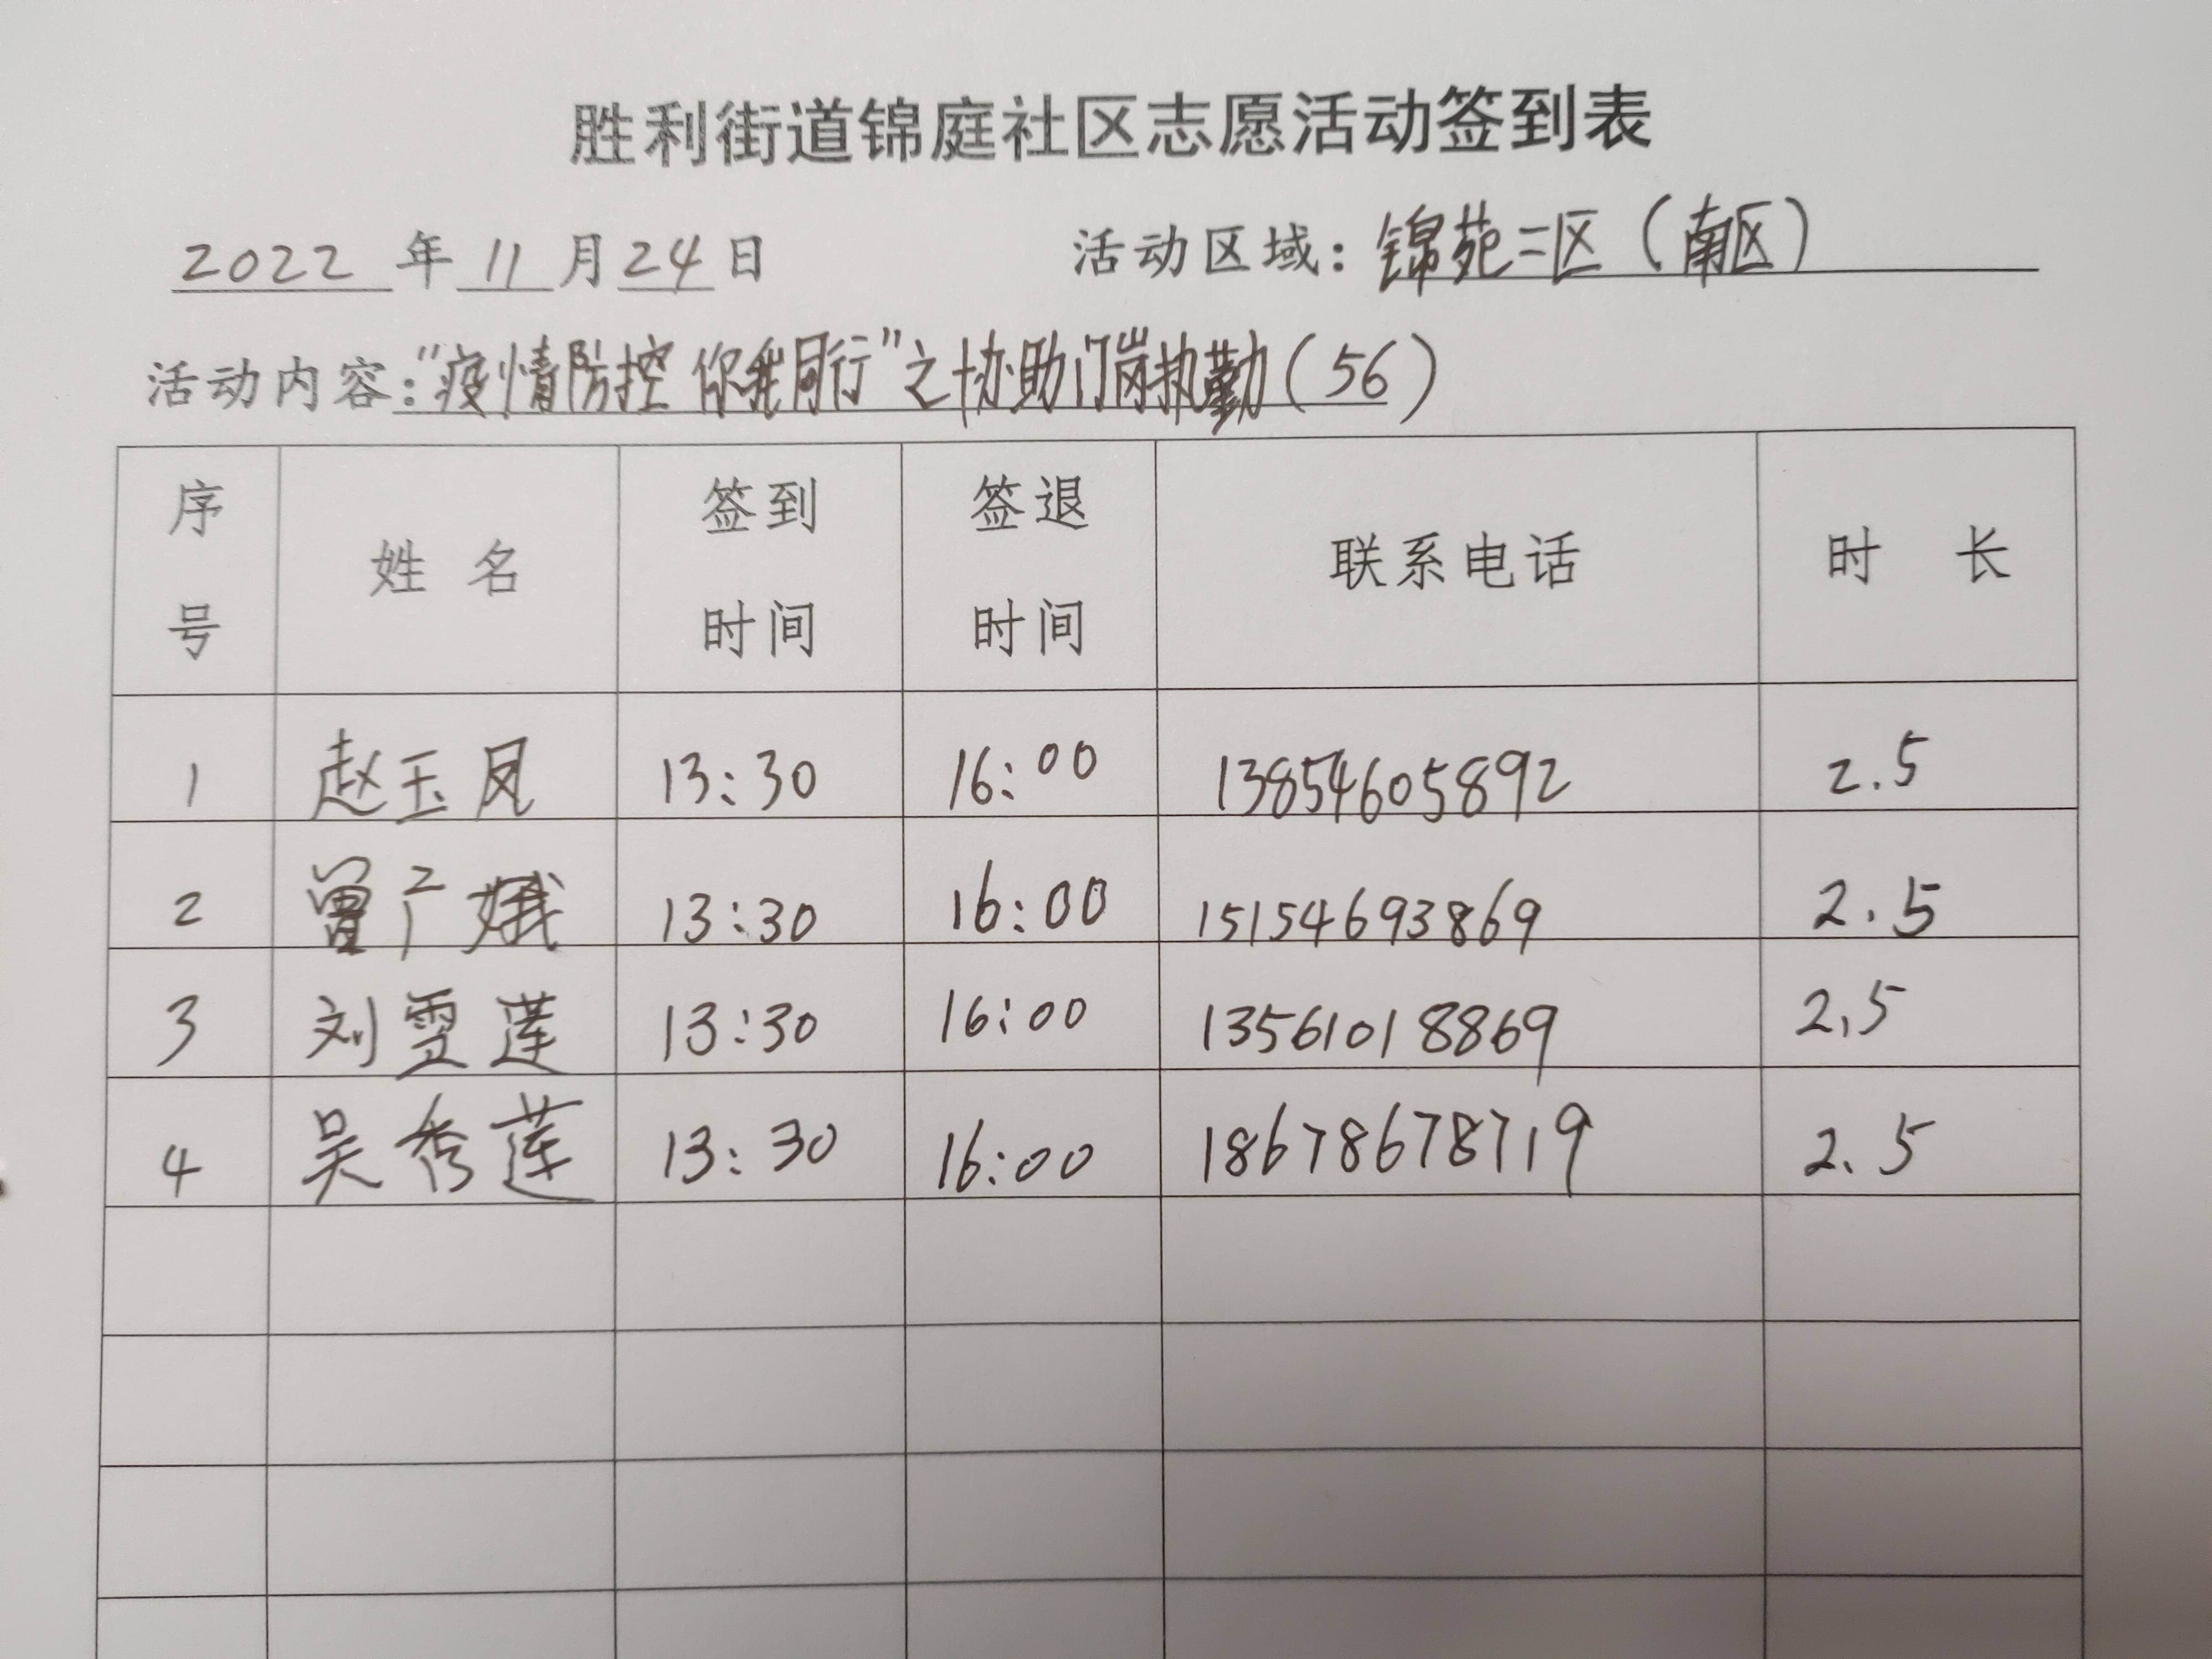 胜利街道锦庭社区志愿活动签到表
2022 年 11 月 24 日 活动区域：锦苑二区（南区）
活动内容：“疫情防控 你我同行”之协助门岗执勤（56）
序号 姓名 签到时间 签退时间 联系电话 时长
1 赵玉凤 13:30 16:00 13854605892 2.5
2 曾广娥 13:30 16:00 15154693869 2.5
3 刘雪莲 13:30 16:00 13561018869 2.5
4 吴秀莲 13:30 16:00 18678678719 2.5